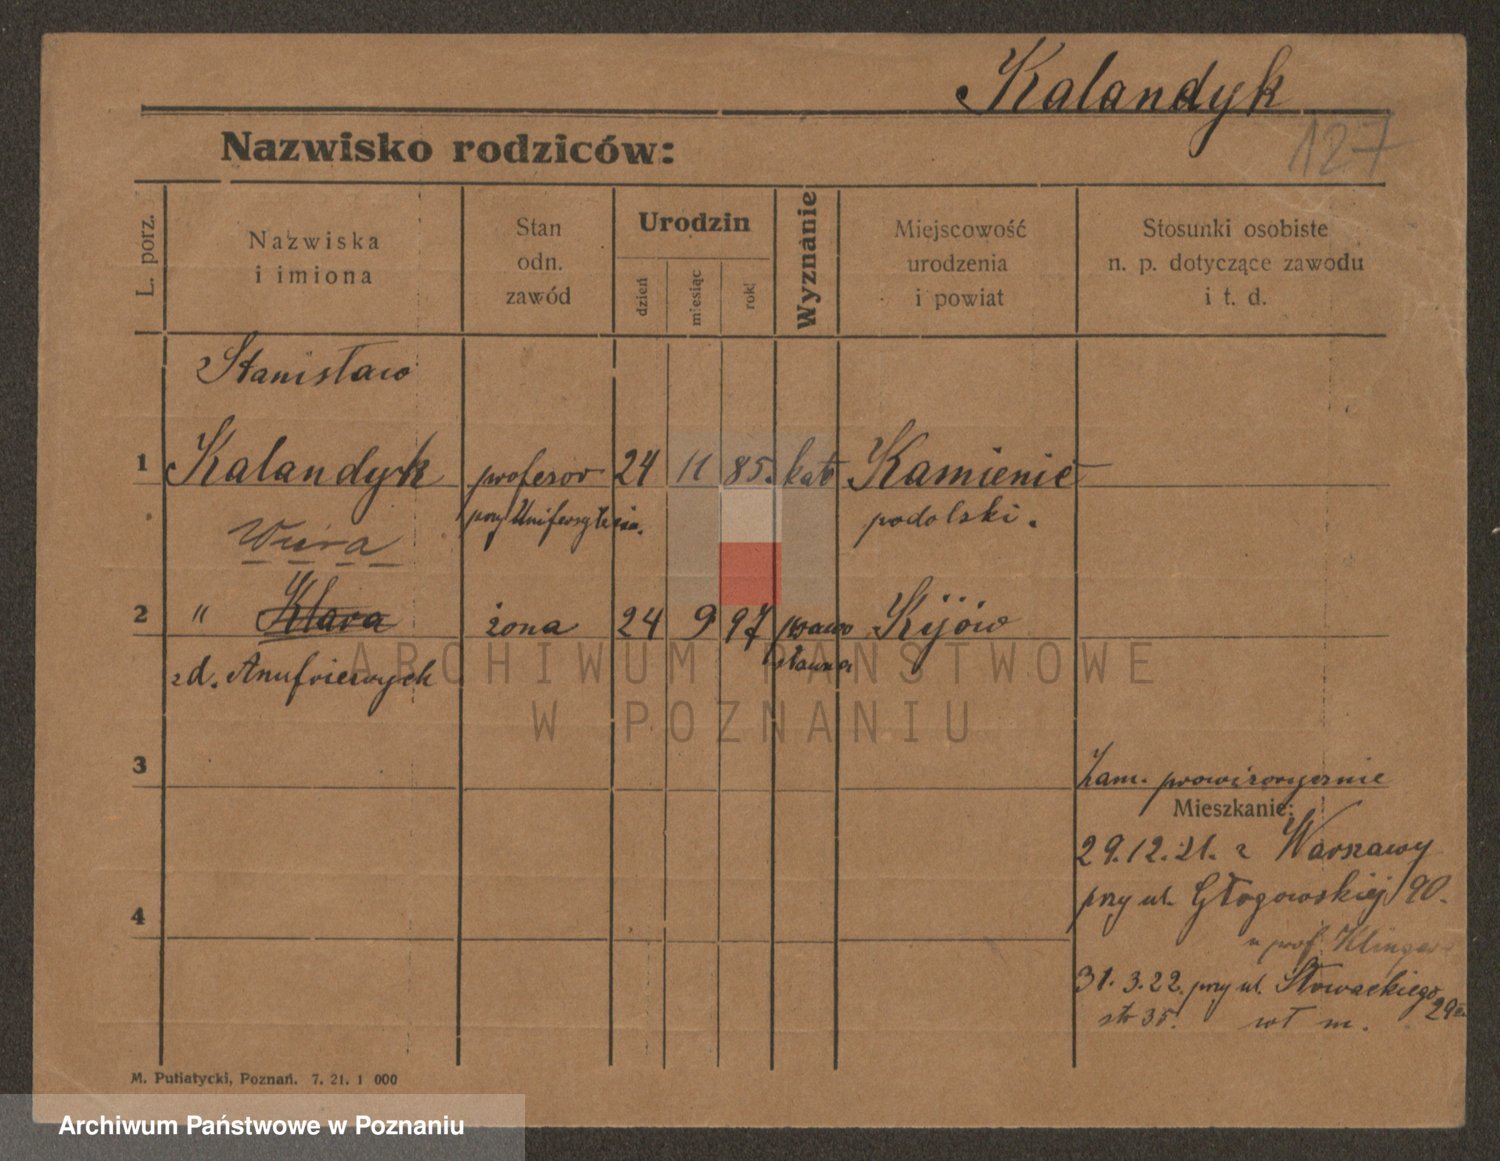 Kalandyk
127
Nazwisko rodziców:
L. porz.
Nazwiska
i imiona
Stan
odn.
zawód
Urodzin
dzień
miesiąc
rok
Wyznanie
Miejscowość
urodzenia
i powiat
Stosunki osobiste
n. p. dotyczące zawodu
i t. d.
Stanisław
1 Kalandyk profesor 24 11 85. kat Kamieniec
przy Uniwersytecie. podolski.
Wiera
2 " Klara żona 24 9 97 prawo Kijów
sławna
z d. Anufriewych
ARCHIWUM PAŃSTWOWE
W POZNANIU
3
Zam. prowizorycznie
Mieszkanie:
29.12.21. z Warszawy
przy ul. Głogowskiej 90.
4
u prof. Klinger
31. 3. 22. przy ul. Słowackiego
str 35. wł m. 29
M. Putiatycki, Poznań. 7. 21. 1 000
Archiwum Państwowe w Poznaniu